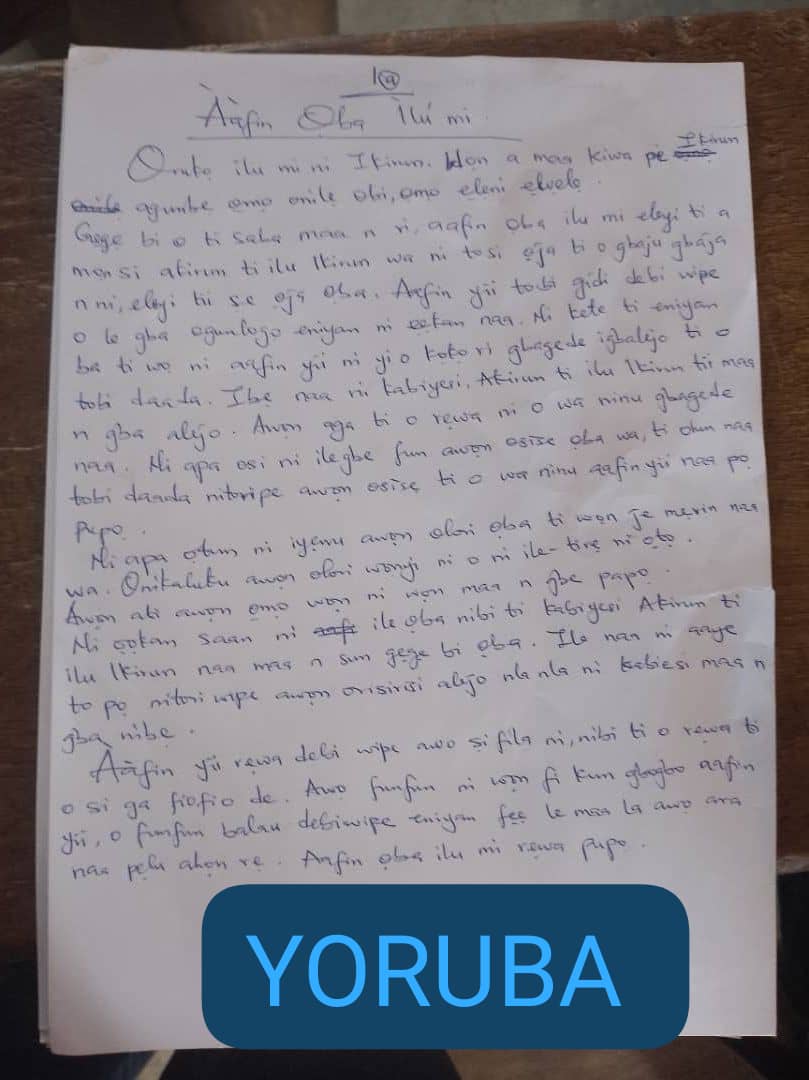 1ⓐ
Ààfin Ọba Ìlú mi
Orukọ ilu mi ni Ikirun. Won a maa kiwa pe Ikirun
agunbe ọmọ onile obi, ọmọ eleni ẹlvẹlẹ.
Gẹgẹ bi o ti saba maa n ri, aafin ọba ilu mi eleyi ti a
mọn si akirun ti ilu Ikirun wa ni tosi ọja ti o gbaju gbaja
n ni, eleyi tii se ọja ọba. Aafin yii tobi gidi debi wipe
o le gba ogunlọgọ eniyan ni ẹẹkan naa. Ni kete ti eniyan
ba ti wọ ni aafin yii ni yio kọkọ ri gbagede igbalejo ti o
tobi daada. Ibẹ naa nii kabiyesi, Akirun ti ilu Ikirun tii maa
n gba alejo. Awọn aga ti o rẹwa ni o wa ninu gbagede
naa. Ni apa osi ni ilegbe fun awọn osise ọba wa, ti ohun naa
tobi daada nitoripe awọn osisẹ ti o wa ninu aafin yii naa pọ
pupọ.
Ni apa ọtun ni iyẹwu awọn olori ọba ti wọn jẹ mẹrin naa
wa. Onikaluku awọn olori wọnyi ni o ni ile-tirẹ ni ọtọ.
Awọn ati awọn ọmọ wọn ni wọn maa n gbe papọ.
Ni ọọkan saan ni ile ọba nibi ti kabiyesi Akirun ti
ilu Ikirun naa maa n sun gẹgẹ bi ọba. Ile naa ni aaye
to pọ nitori wipe awọn orisirisi alejo nla nla ni kabiesi maa n
gba nibẹ.
Aàfin yii rẹwa debi wipe awo sifila ni, nibi ti o rẹwa ti
o si ga fiofio de. Awọ funfun ni wọn fi kun gbogbo aafin
yii, o funfun balau debiwipe eniyan fẹẹ le maa la awọ ara
naa pẹlu ahọn rẹ. Aafin ọba ilu mi rẹwa pupọ.
YORUBA